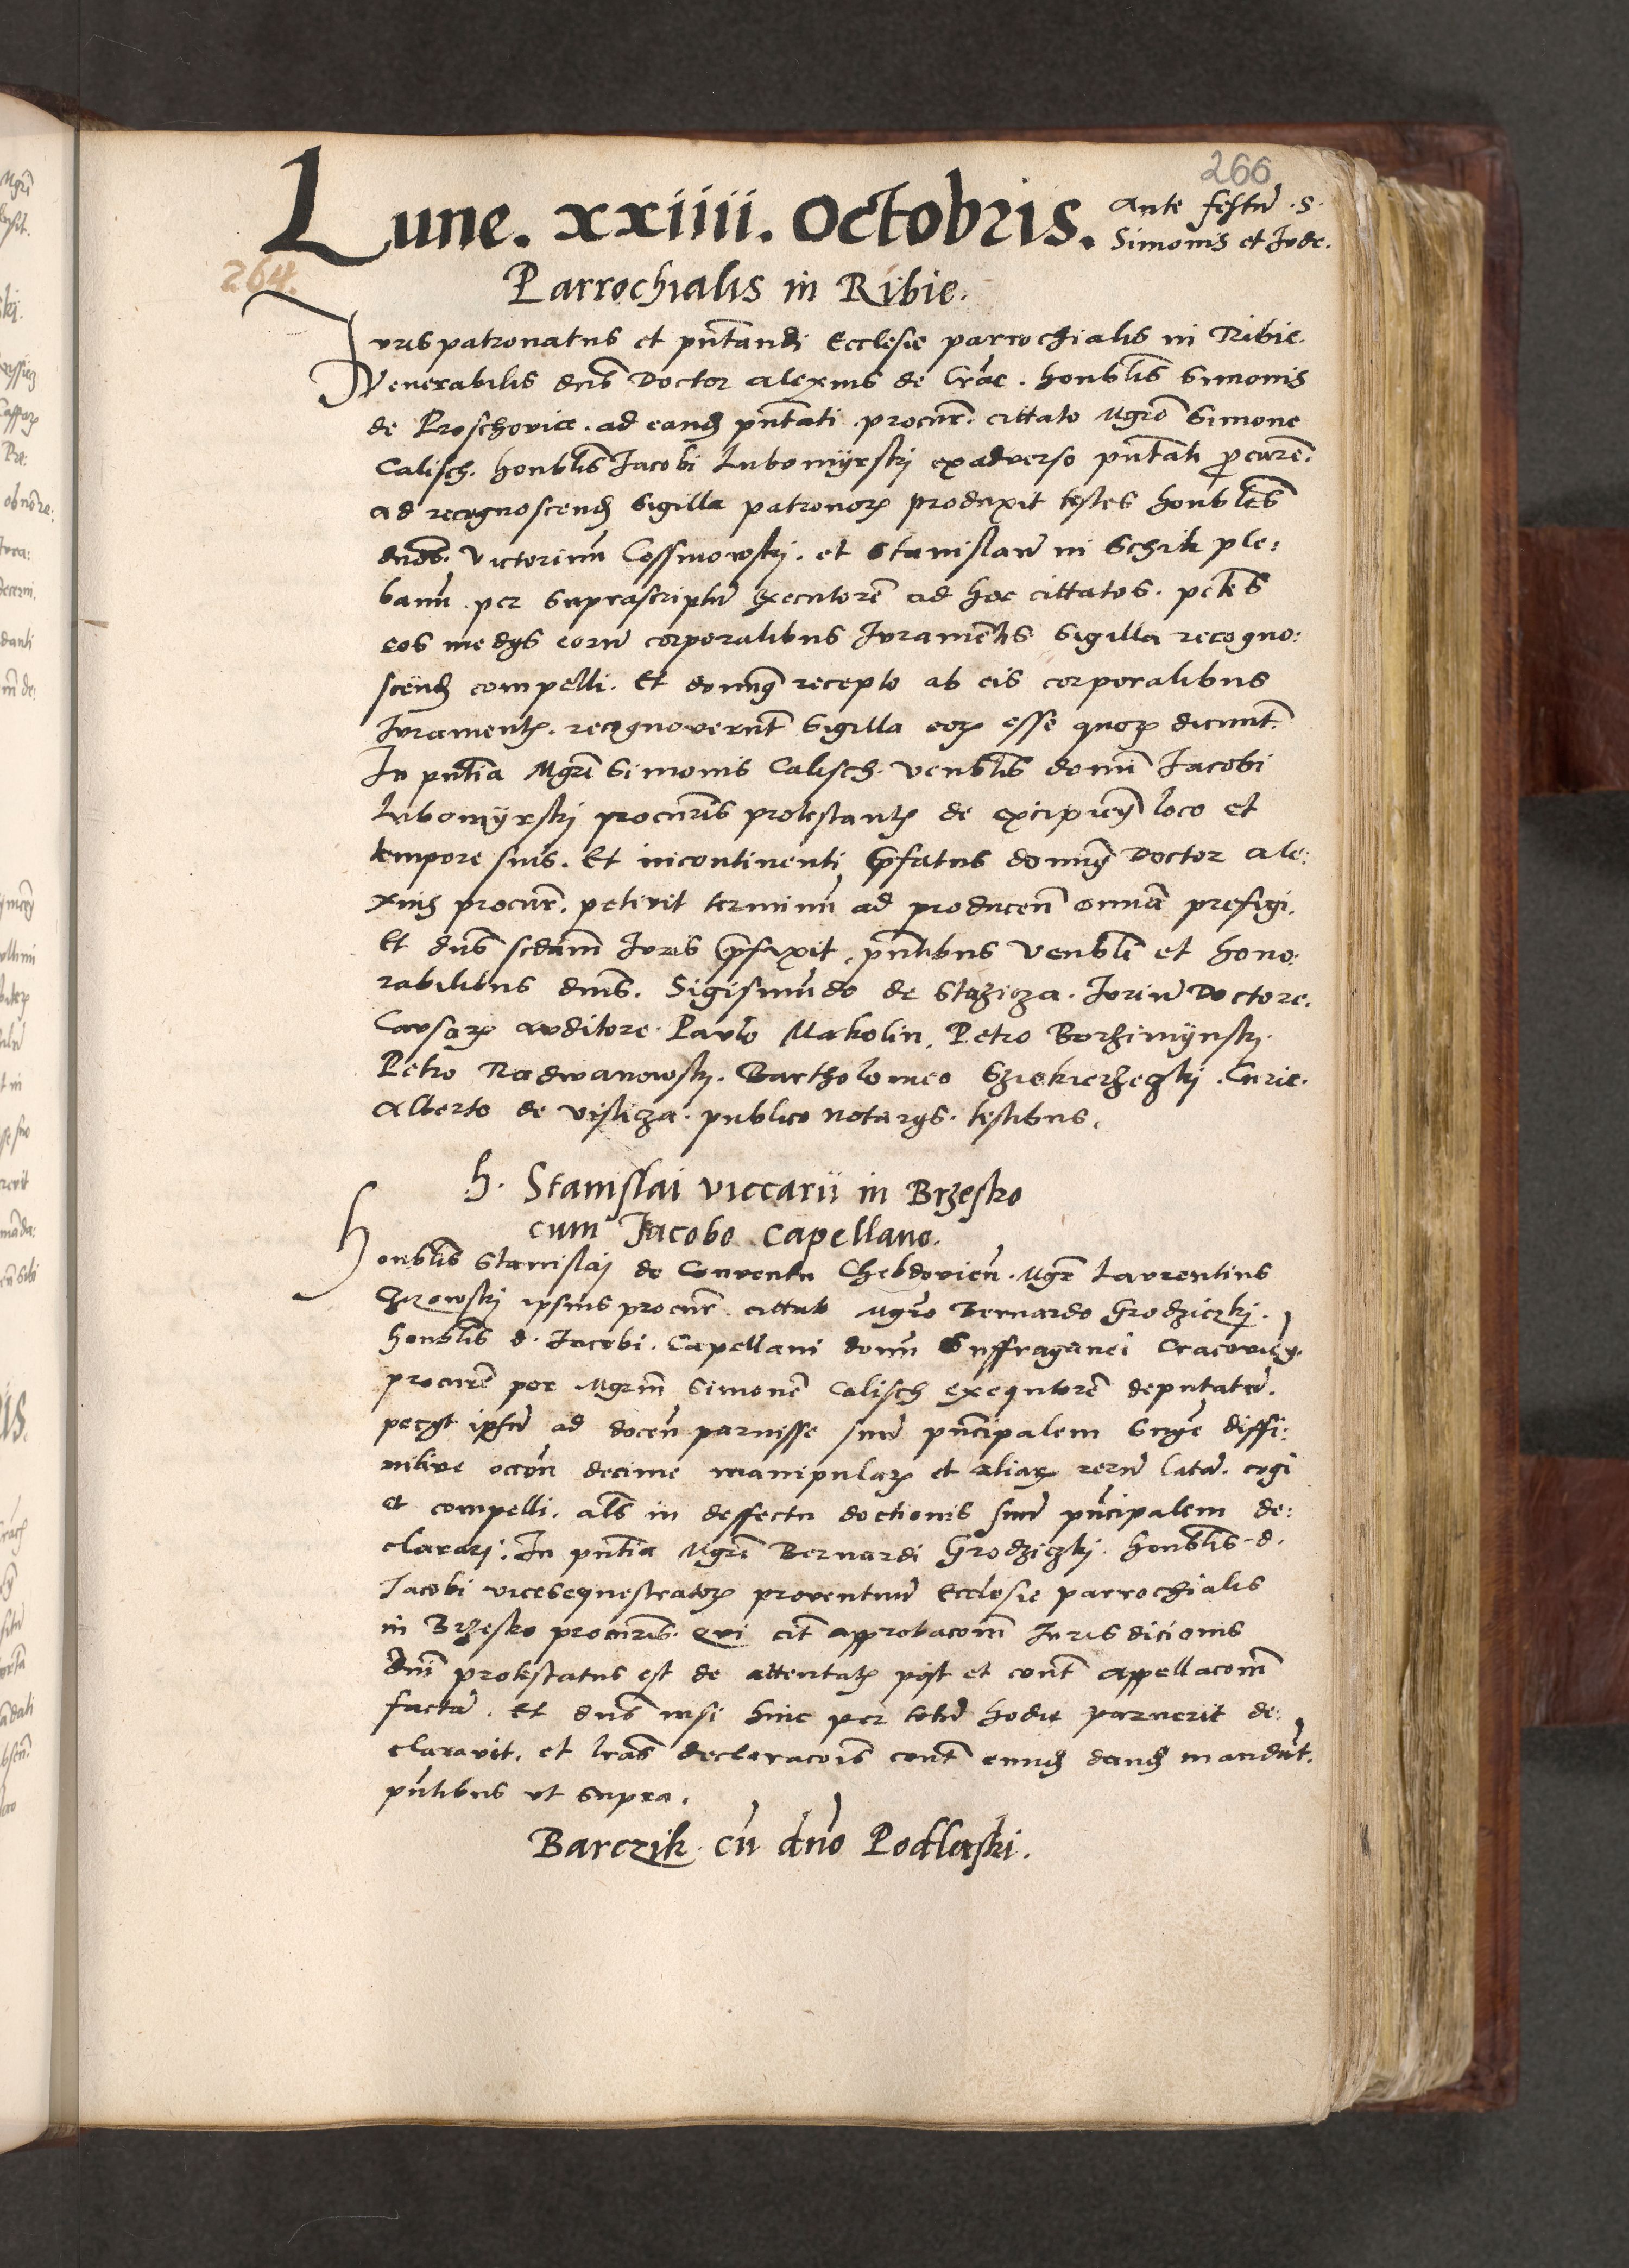 266
Lune. xxiiii. Octobris. Ante festũ .S.
Simonis et Jude.
264.
Parrochialis in Ribie.
Juris patronatus et pñtandi Ecclesie parrochialis in Ribie.
Venerabilis dñs Doctor alexius de Crac. honblis Simonis
de Proschovice. ad eandẽ pñtati procur̃. cittato Mgrõ Simone
Calisch. honblis Jacobi Lubomÿrskj ex adverso pñtati ꝓcurẽ.
ad recognoscenđ Sigilla patronoꝝ produxit testes honbles
dños. Victorinũ Cossmowskj. et Stanislaũ in Schik ple:
banũ per suprascriptũ executorẽ ad hoc cittatos. petẽs
eos medijs eorũ corporalibus Juramẽtis Sigilla recogno:
scenđ compelli. Et recepto ab eis corporalibus
Juramentꝭ. recognoverũt Sigilla eoꝝ esse quoꝝ dicunt.
In pñtia Mgrĩ Simonis Calisch. venblis domĩ Jacobi
Lubomÿrskj procuris protestantꝭ de excipienɖ loco et
tempore suis. Et incontinenti p̃fatus Doctor ale:
xius procur̃. petivit terminũ ad producenđ omnia prefigi.
Et dñs scđum Juris p̃fixit. pñtibus Venbli et hono:
rabilibus dñis. Sigismũdo de Stȩzicza. Juriũ Doctore.
Causaꝝ auditore. Paulo Makolin. Petro Borzimÿnskj.
Petro Radwanowskj. Bartholomeo . Curie.
Alberto de Vislicza. publico notarijs. testibus.
h. Stanislai viccarii in Brzesko
cum Jacobo Capellano.
Honblis Stanislaj de Conventu Chebdovieñ. Mgr̃ Laurentius
ipsius procur̃. cittato Mgrõ Bernardo Grodziczkj.
honblis d. Jacobi. Capellani domĩ Suffraganei Cracovieñ.
procurẽ per Mgrm̃ Simonẽ Calisch exequtorẽ deputatũ.
petijt ipsũ ad doceñ paruisse suiã pñcipalem Snỹe diffi:
nitive occoñ decime manipulaꝝ et aliaꝝ rerũ latã. cogi
et compelli. als in deffectu doctionis suũ pñcipalem de:
clararj. In pñtia Mgrĩ Bernardi Grodziczkj. honblis d.
Jacobi vicesequestratoꝝ proventuũ Ecclesie parrochialis
in Brzesko procuris. Qui cit̃ approbacom̃ Jurisdicionis
dñi protestatus est de attentatꝭ post et cont̃ appellacom̃
factã. Et dñs nisi hinc per totũ hodie paruerit de:
claravit. et lras declaracois cont̃ eunđ danđ mandavit.
pñtibus ut supra.
Barczik. cũ dño Podlaski.